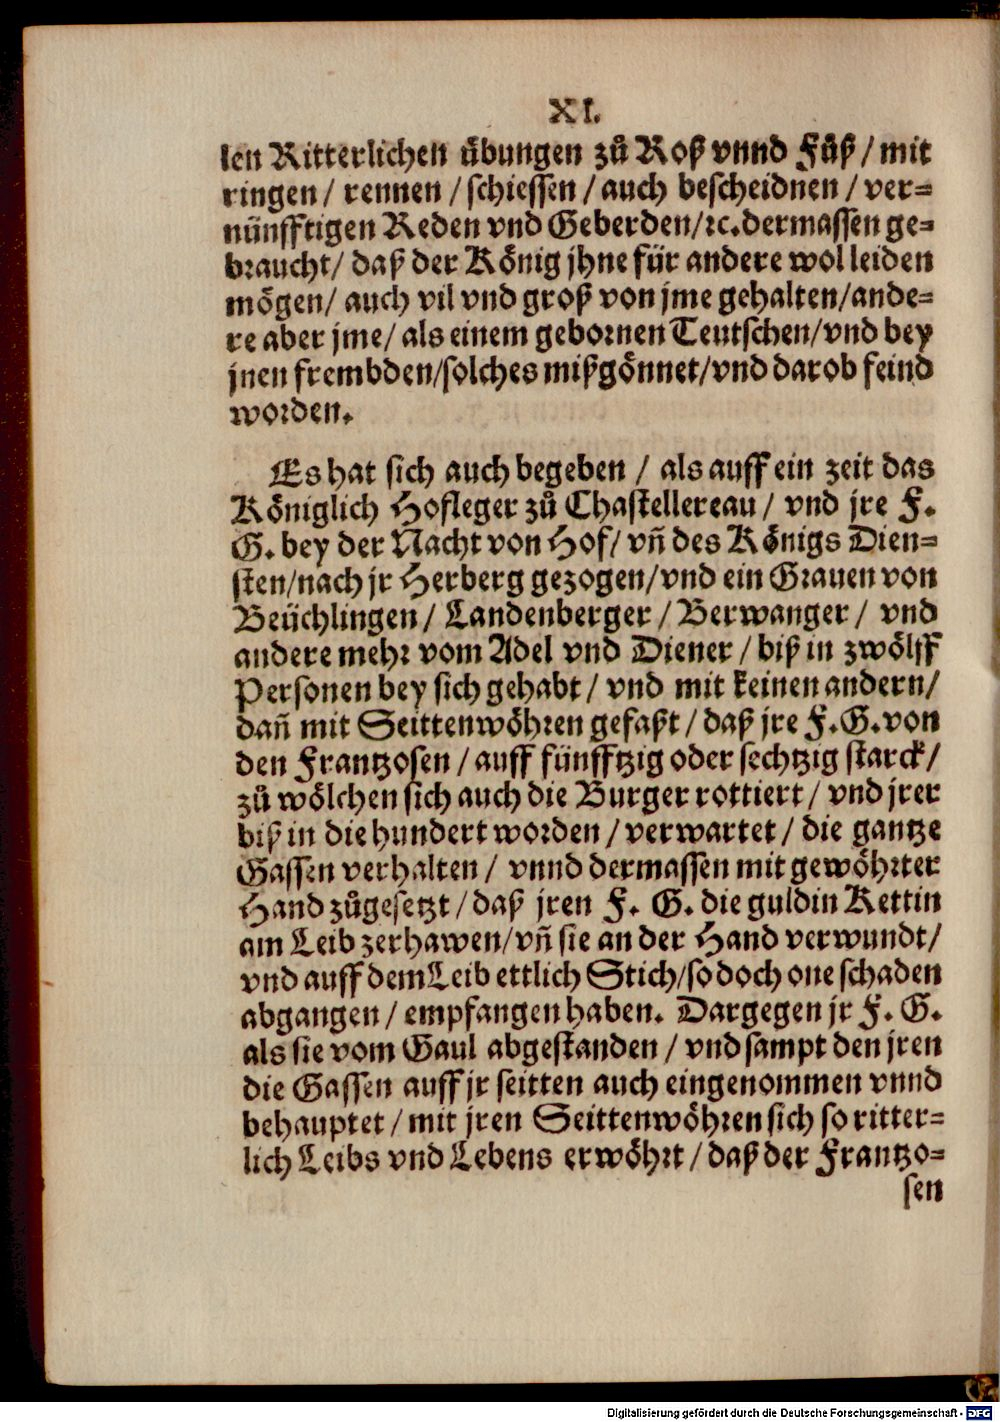 XI.
len Ritterlichen übungen zů Roß vnnd Fůß / mit
ringen / rennen / schiessen / auch bescheidnen / ver=
nünfftigen Reden vnd Geberden/ꝛc. dermassen ge=
braucht/ daß der Künig jhne für andere wol leiden
mögen/ auch vil vnd groß von jme gehalten/ande=
re aber jme/ als einem gebornen Teutschen/vnd bey
jnen frembden/solches mißgönnet/vnd darob feind
worden.
Es hat sich auch begeben / als auff ein zeit das
Königlich Hofleger zů Chastellereau / vnd jre F.
G. bey der Nacht von Hof/ vñ des Königs Dien=
sten/nach jr Herberg gezogen/vnd ein Grauen von
Beüchlingen / Landenberger / Berwanger / vnd
andere mehr vom Adel vnd Diener / biß in zwölff
Personen bey sich gehabt / vnd mit keinen andern/
dañ mit Seittenwöhren gefaßt / daß jre F. G. von
den Frantzosen / auff fünfftzig oder sechtzig starck/
zů wölchen sich auch die Burger rottiert / vnd jrer
biß in die hundert worden / verwartet / die gantze
Gassen verhalten / vnnd dermassen mit gewöhrter
Hand zůgesetzt / daß jren F. G. die guldin Kettin
am Leib zerhawen/vñ sie an der Hand verwundt/
vnd auff dem Leib ettlich Stich/so doch one schaden
abgangen / empfangen haben. Dargegen jr F. G.
als sie vom Gaul abgestanden / vnd sampt den jren
die Gassen auff jr seitten auch eingenommen vnnd
behauptet / mit jren Seittenwöhren sich so ritter=
lich Leibs vnd Lebens erwöhrt / daß der Frantzo=
sen
Digitalisierung gefördert durch die Deutsche Forschungsgemeinschaft - DFG